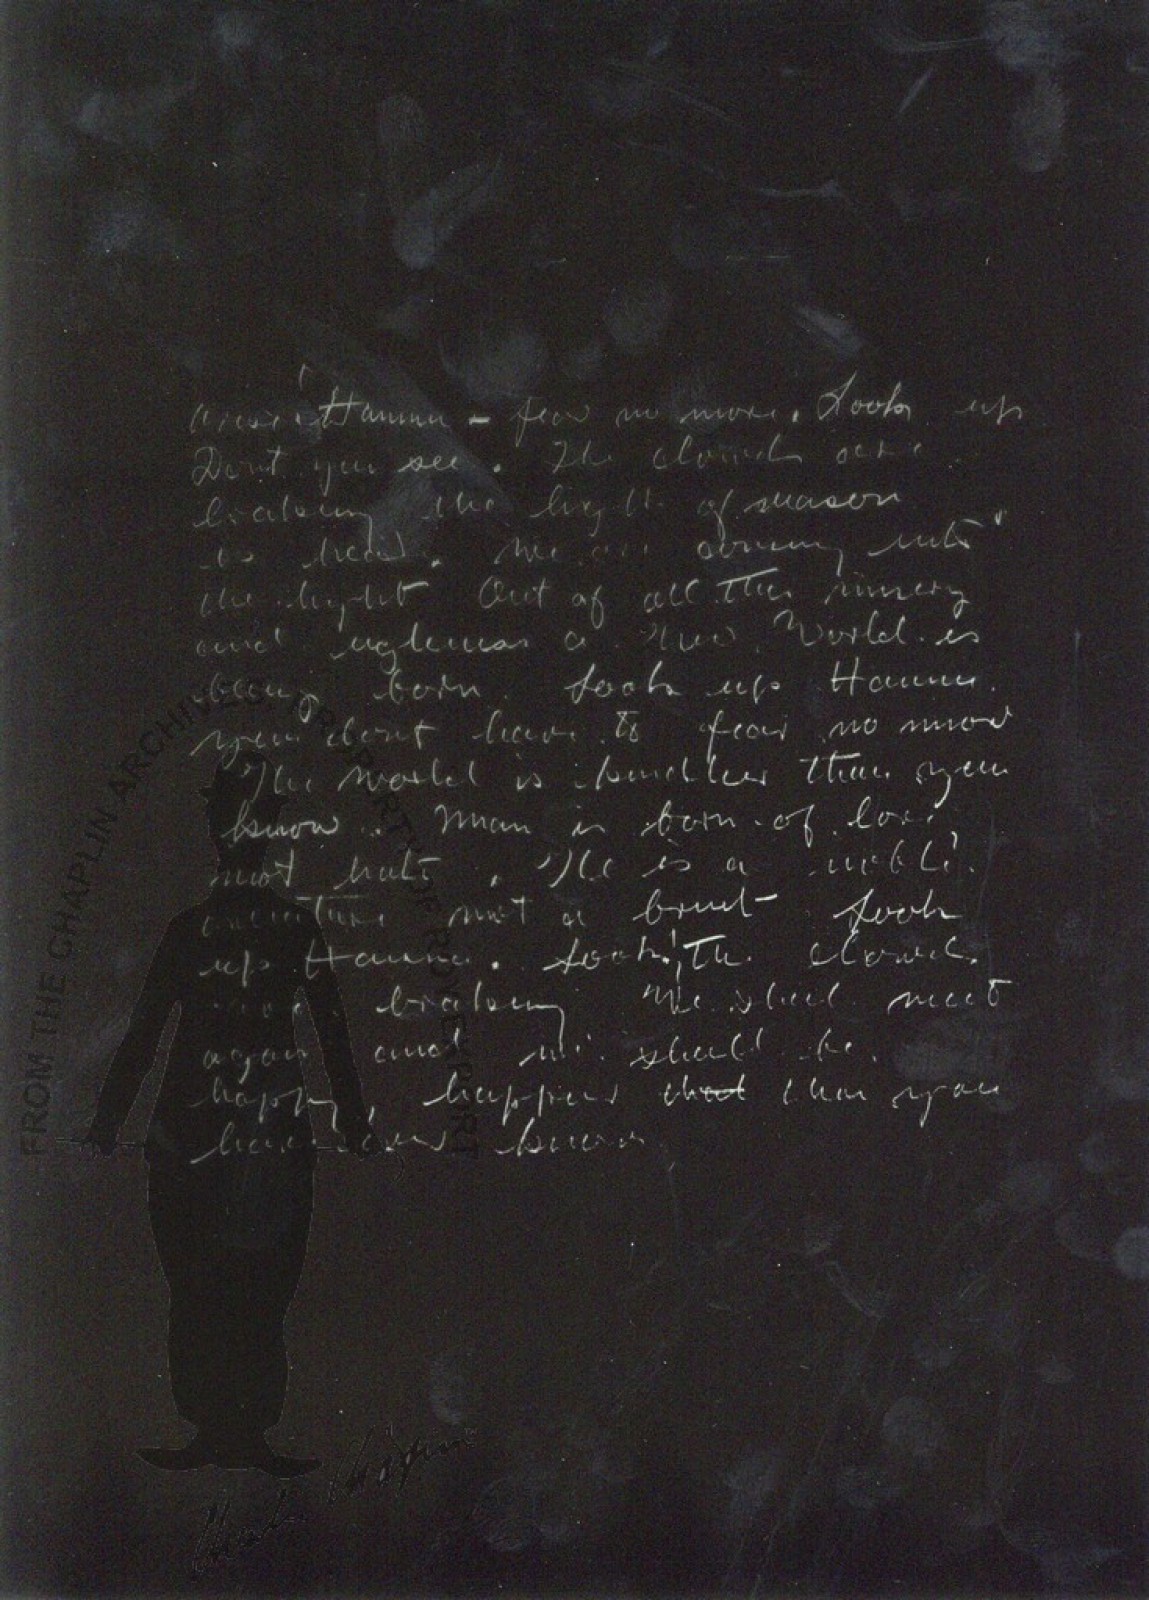 Hannu - fear no more. Look up
Dont you see. The clouds are
breaking the light of reason
is here. We are coming into
the light Out of all this misery
and ugliness a New World is
being born. Look up Hannu.
you dont have to fear no more
The world is kindlier than you
know. Man is born of love
not hate. He is a noble
creature not a brute Look
up Hannu. Look! The clouds
are breaking We shall meet
again and we shall be
happy, happier that than you
have ever known
FROM THE CHAPLIN ARCHIVES PROPERTY OF ROY EXPORT
Charlie Chaplin